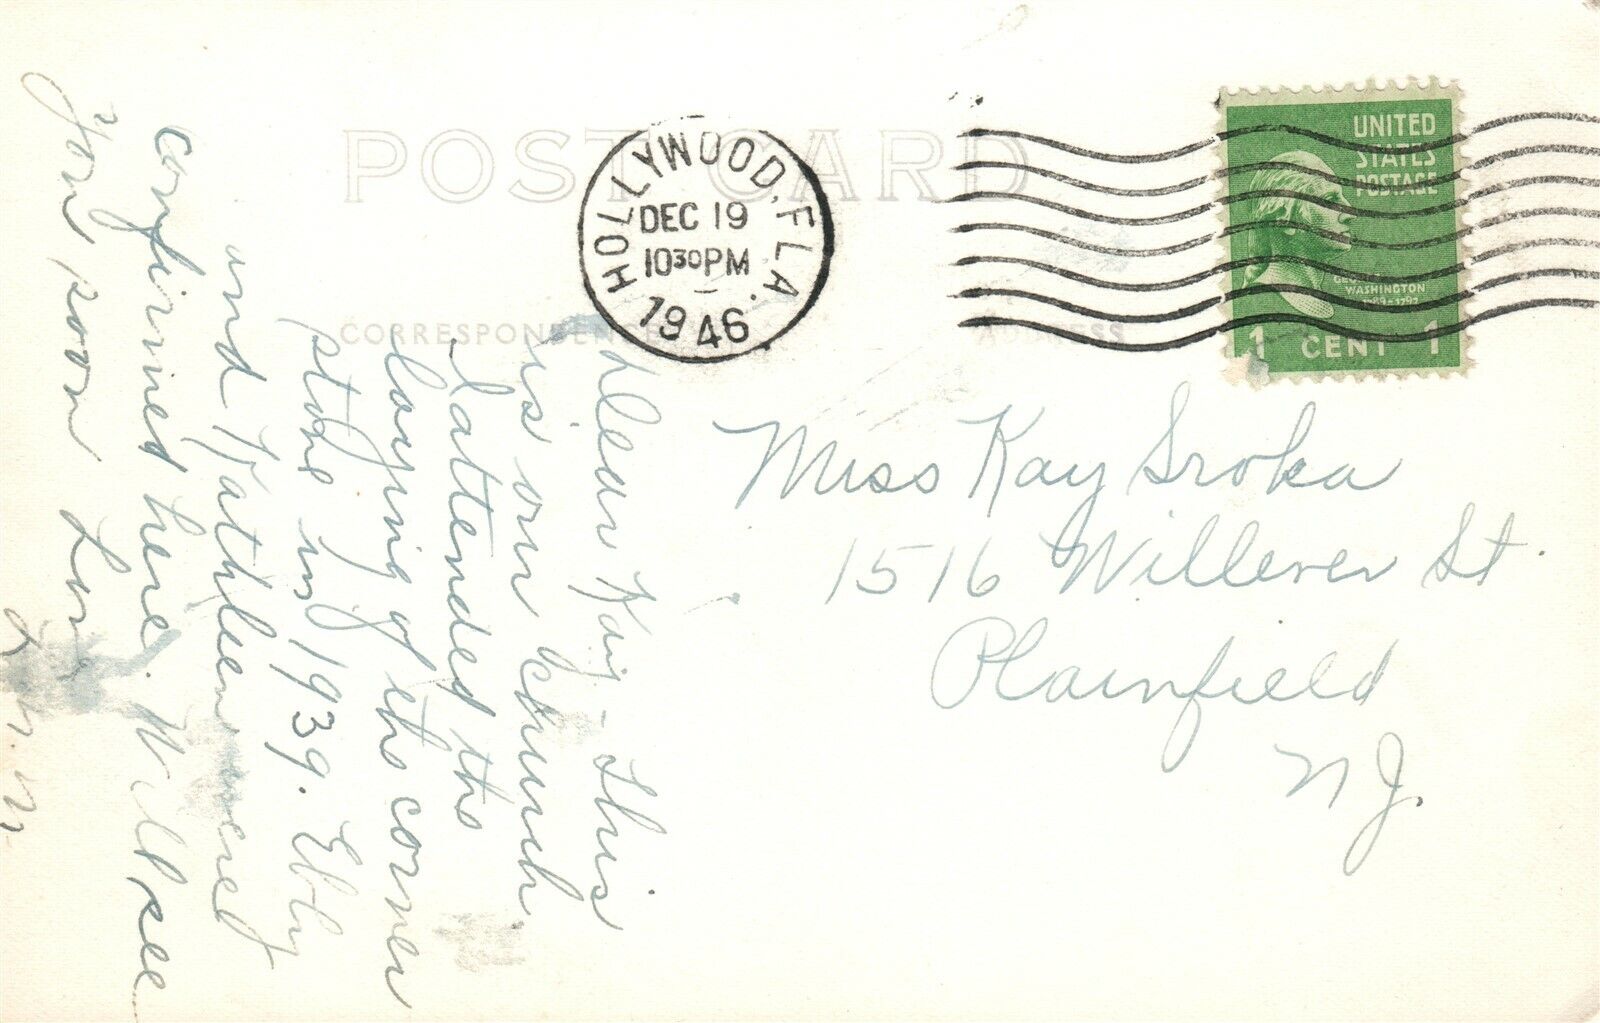 POST CARD
HOLLYWOOD, FLA.
DEC 19
10 30 PM
1946
UNITED
STATES
POSTAGE
GEORGE
WASHINGTON
1789-1797
1 CENT 1
CORRESPONDENCE
ADDRESS
Miss Kay Sroka
1516 Willever St
Plainfield
N J.
Dear Kay - This
is our church
I attended the
laying of the corner
stone in 1939. Ebby
and Kathleen were
confirmed here. Will see
you soon Love